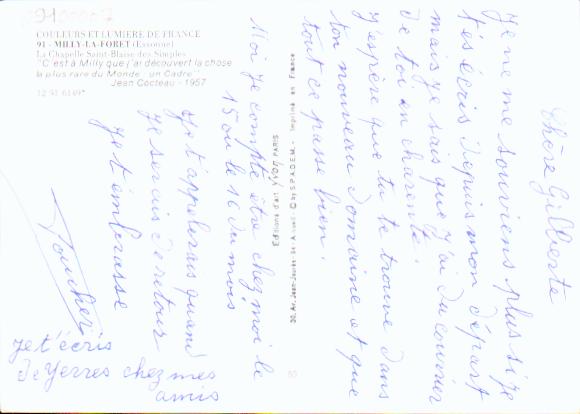 COULEURS ET LUMIERE DE FRANCE
91 - MILLY-LA-FORET (Essonne)
La Chapelle Saint-Blaise des Simples
"C'est à Milly que j'ai découvert la chose
la plus rare du Monde : un Cadre".
Jean Cocteau - 1957
12 91 6149*
Editions d'art YVON PARIS
30, Av. Jean-Jaurès 94 Arcueil © by S.P.A.D.E.M. - Imprimé en France
Chère Gilberte
Je ne me souviens plus si je
t'és écris depuis mon départ
mais je sais que j'ai du courrier
de toi en charente.
J'espère que tu te trouve dans
ton nouveau domaine et que
tout ce passe bien.
Moi je compte être chez moi le
15 ou le 16 du mois
je t'appelerais quand
je serais de retour
je t'embrasse
je t'écris
de Yerres chez mes
amis